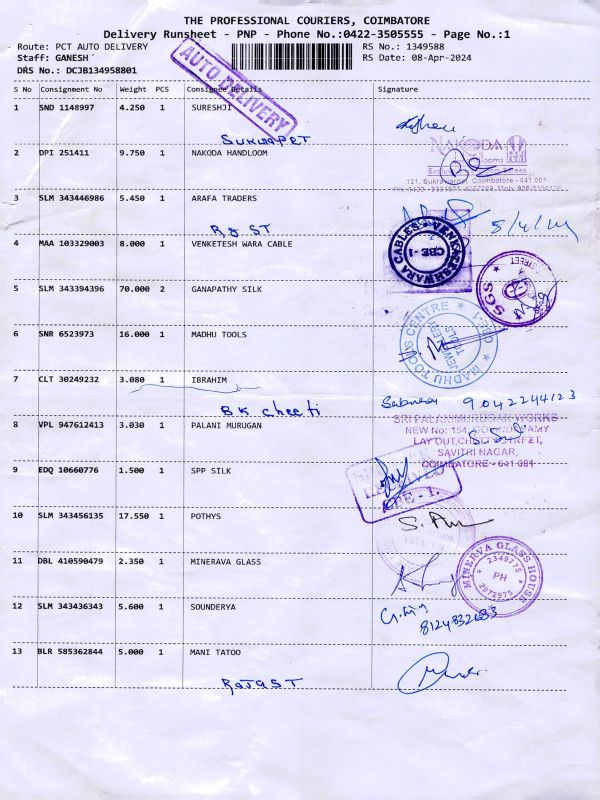 THE PROFESSIONAL COURIERS, COIMBATORE
Delivery Runsheet - PNP - Phone No.:0422-3505555 - Page No.:1
Route: PCT AUTO DELIVERY RS No.: 1349588
Staff: GANESH RS Date: 08-Apr-2024
DRS No.: DCJB134958801
AUTO DELIVERY
S No Consignment No Weight PCS Consignee Details Signature
1 SND 1148997 4.250 1 SURESHJI
Sukrapet
2 DPI 251411 9.750 1 NAKODA HANDLOOM
NAKODA
121, Sukrawarpet, Coimbatore - 641 001
3 SLM 343446986 5.450 1 ARAFA TRADERS
Rg ST
4 MAA 103329003 8.000 1 VENKETESH WARA CABLE
VENKATESHWARA CABLES
CBE - 1
5 SLM 343394396 70.000 2 GANAPATHY SILK
SGS
STREET
6 SNR 6523973 16.000 1 MADHU TOOLS
MADHU TOOLS CENTRE
JEWELLERY TOOLS
7 CLT 30249232 3.080 1 IBRAHIM
BK cheeti
9042244123
8 VPL 947612413 3.030 1 PALANI MURUGAN
SRI PALANIMURUGAN WORKS
NEW No: 154,
LAY OUT, STREET,
SAVITRI NAGAR,
COIMBATORE - 641 001
9 EDQ 10660776 1.500 1 SPP SILK
RECEIVED
CBE - 1.
10 SLM 343456135 17.550 1 POTHYS
11 DBL 410590479 2.350 1 MINERAVA GLASS
MINERVA GLASS HOUSE
2349775
PH
2972975
12 SLM 343436343 5.600 1 SOUNDERYA
8124332683
13 BLR 585362844 5.000 1 MANI TATOO
Raja ST